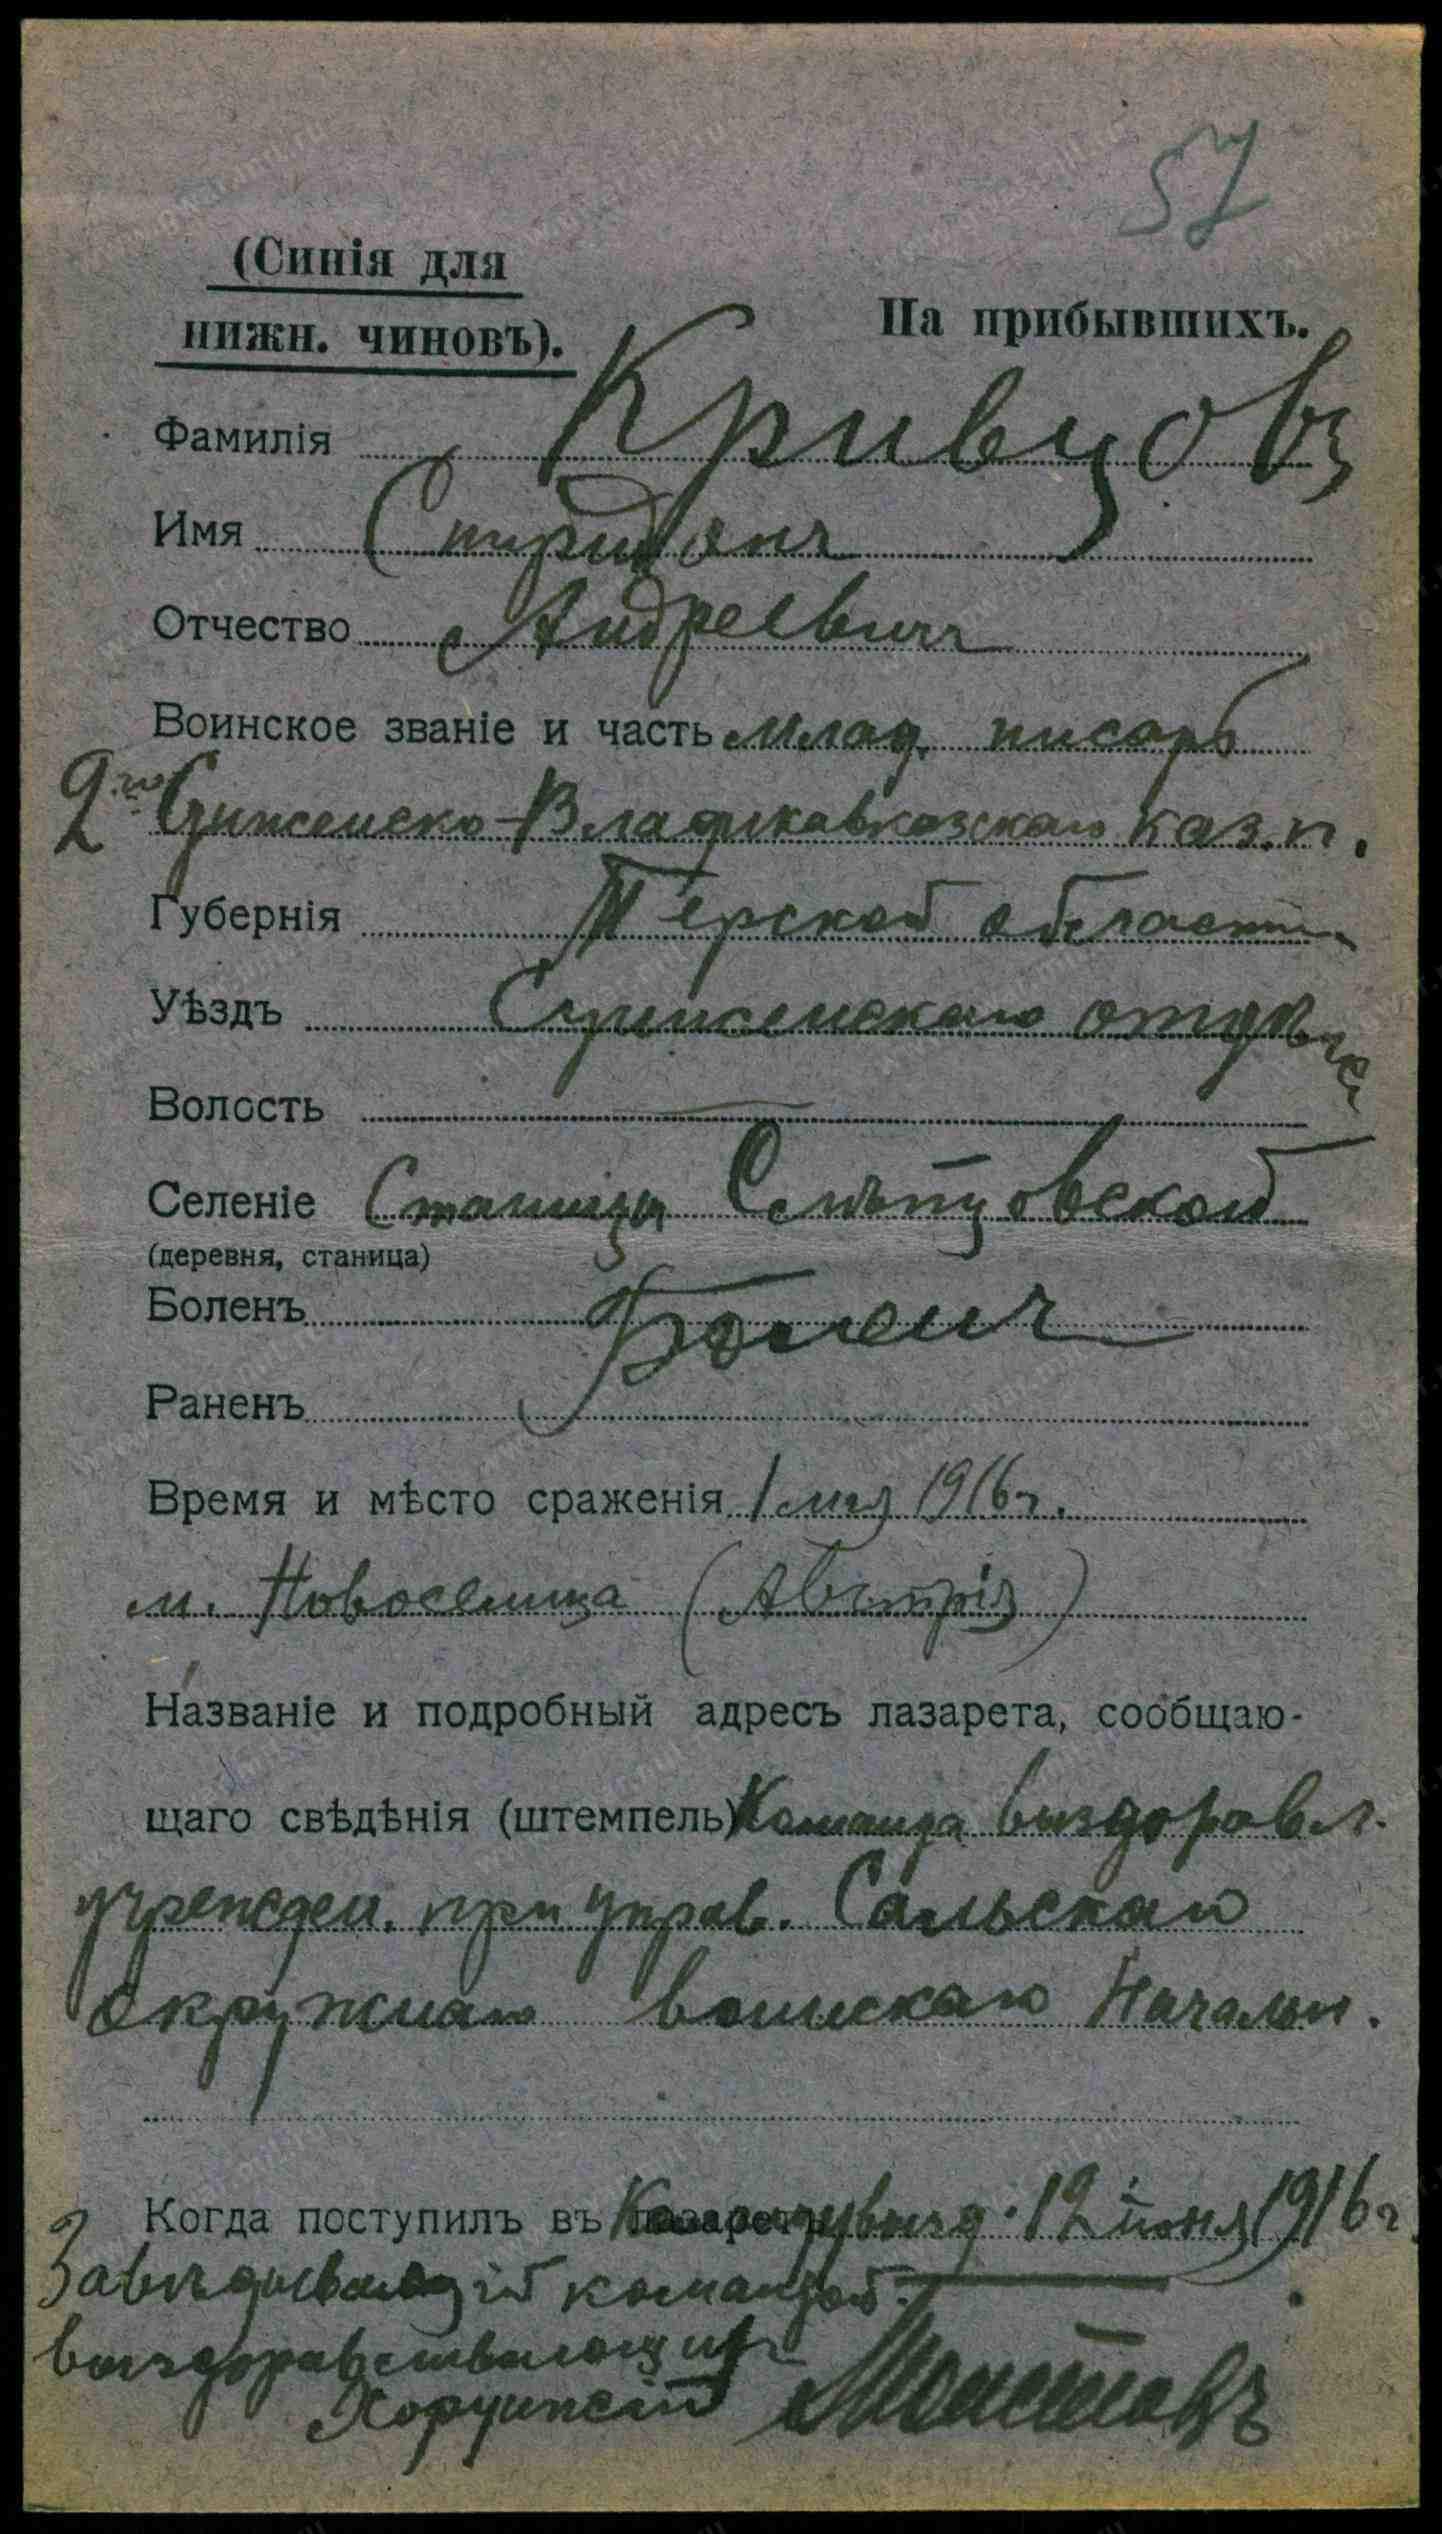 57
(Синія для
нижн. чиновъ).
На прибывшихъ.
Фамилія Кривцовъ
Имя Спиридонъ
Отчество Андреевичъ
Воинское званіе и часть млад. писарь
2го Сунженско-Владикавказскаго каз. п.
Губернія Терской области
Уѣздъ Сунженскаго отдѣла
Волость
Селеніе Станицы Слѣпцовской
(деревня, станица)
Боленъ Боленъ
Раненъ
Время и мѣсто сраженія 1 мая 1916 г.
м. Новоселица (Австрія)
Названіе и подробный адресъ лазарета, сообщаю-
щаго свѣдѣнія (штемпель) Команда выздоровл.
учрежден. при управ. Сальскаго
окружнаго воинскаго Начальн.
Когда поступилъ въ лазаретъ 12 іюня 1916 г.
Завѣдывающій командой
выздоравливающихъ
Хорунжій